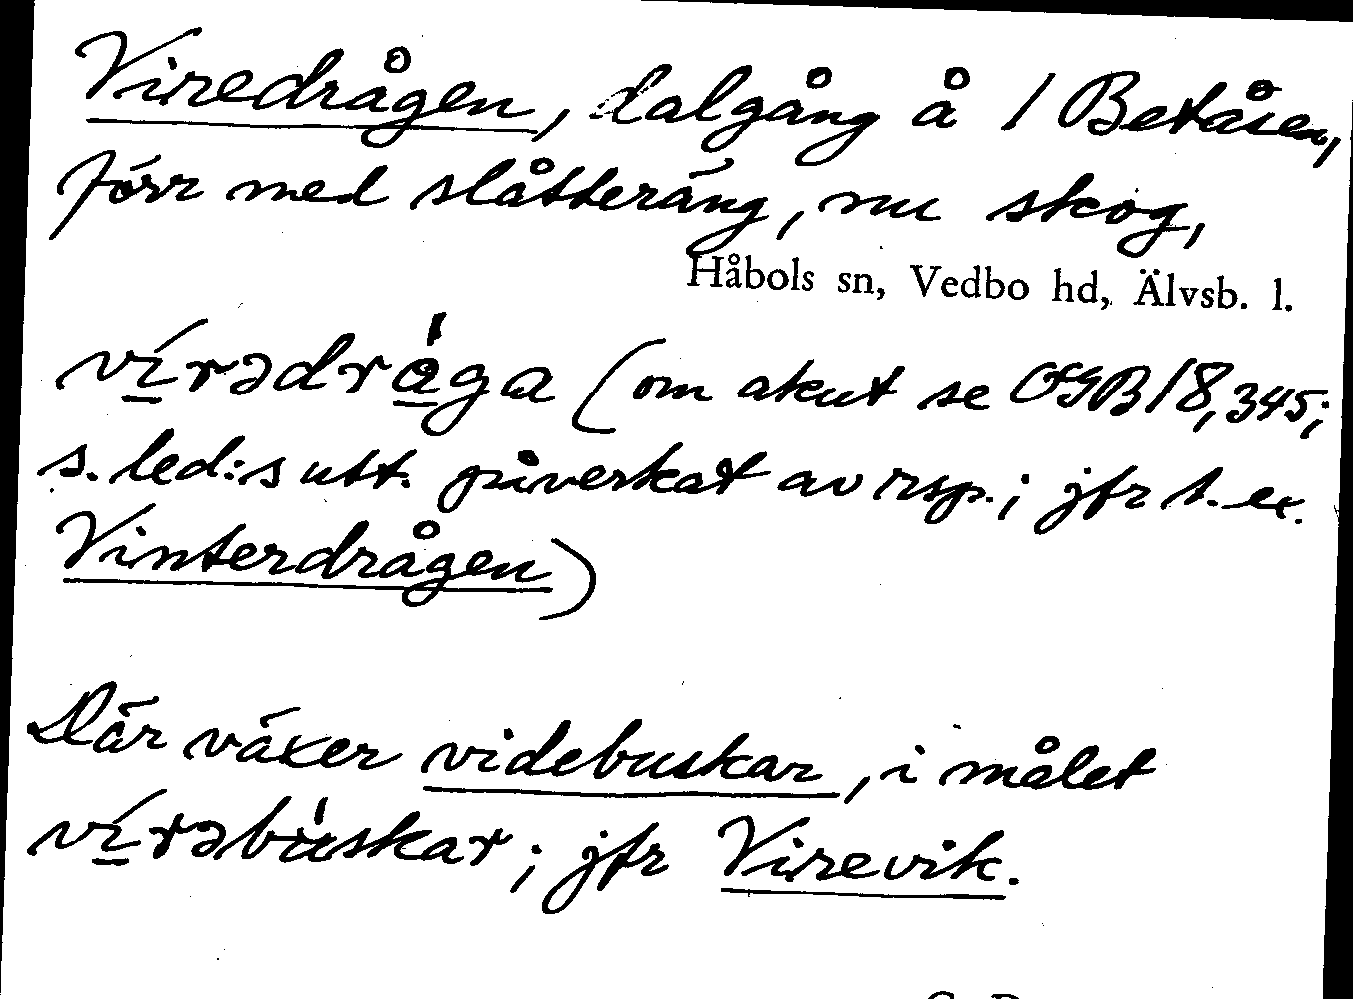 Viredrågen, dalgång å 1 Betåsen,
förr med slåtteräng, nu skog,
Håbols sn, Vedbo hd, Älvsb. l.
vírədråga (om akut se OGB 18, 345;
s. led:s utt. påverkat av rsp.; jfr t. ex.
Vinterdrågen)
Där växer videbuskar, i målet
vírəbuskar; jfr Virevik.